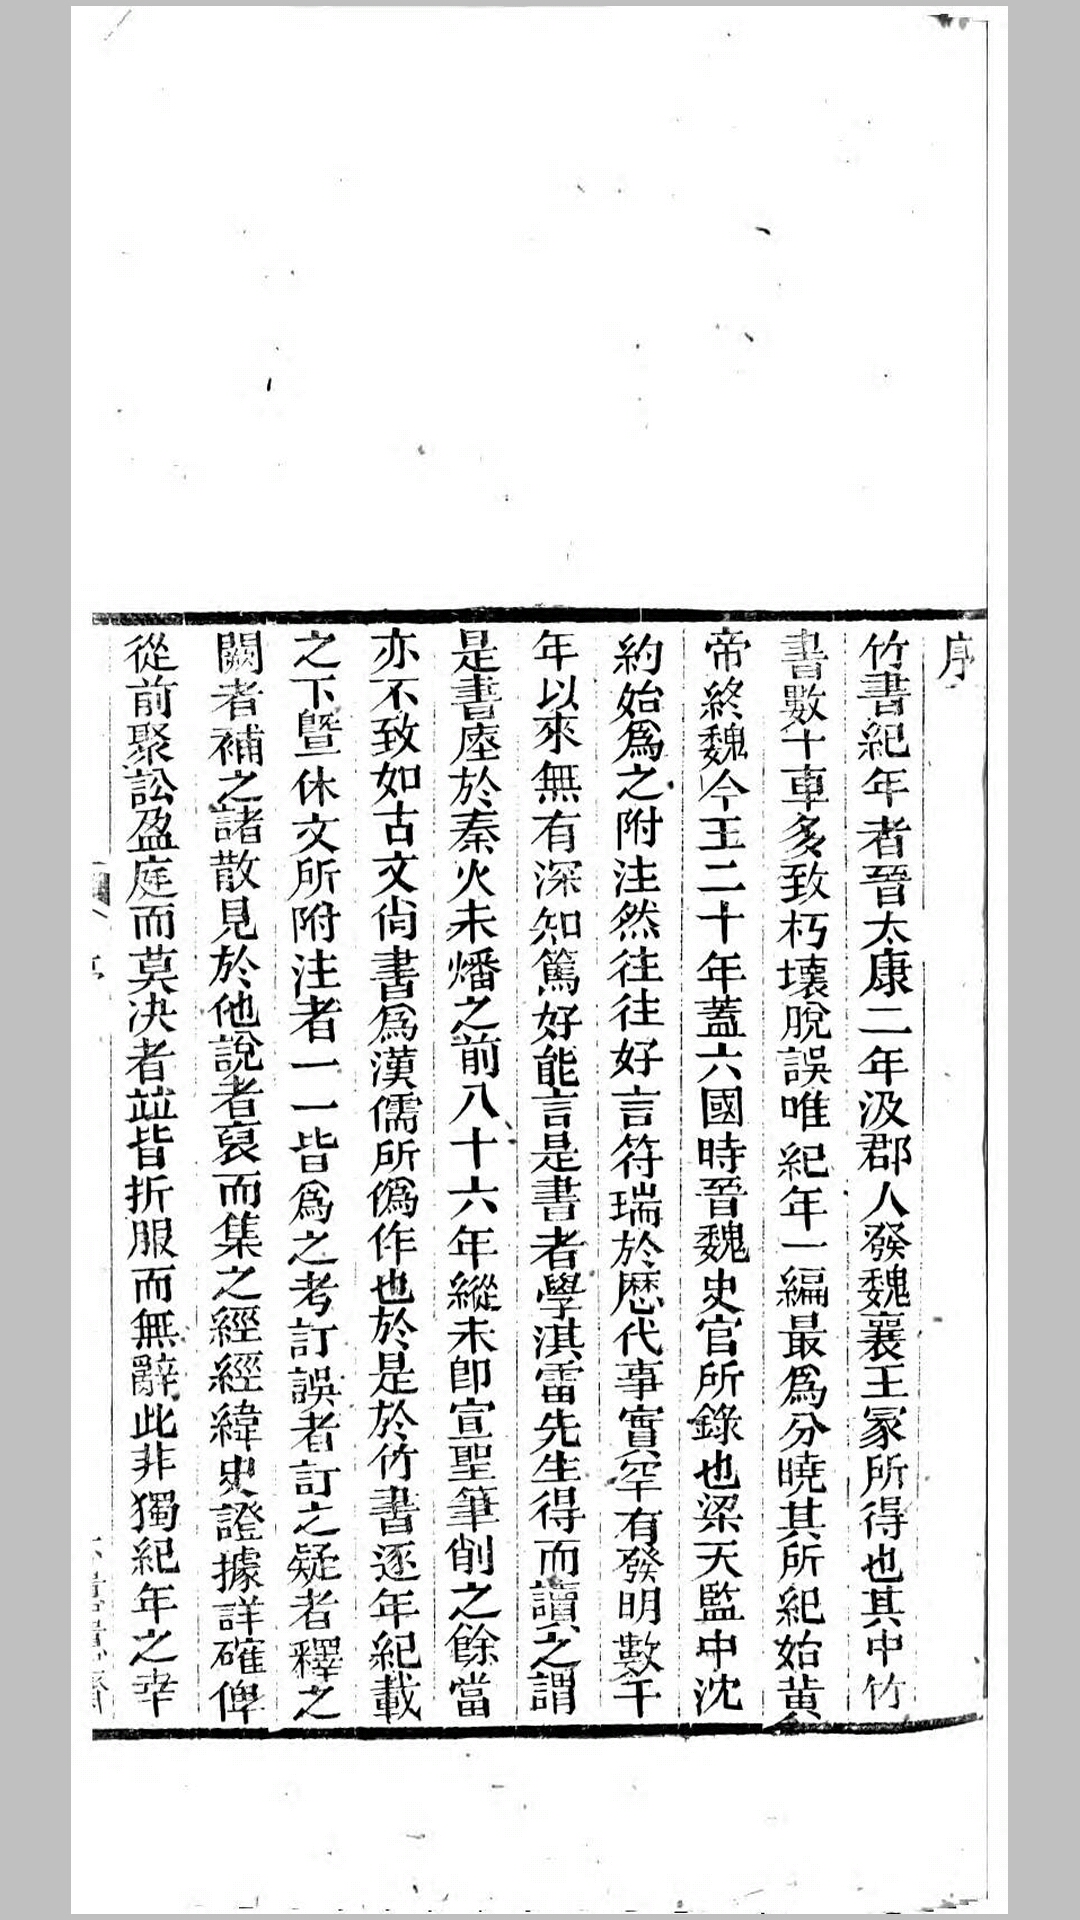 序
竹書紀年者晉太康二年汲郡人發魏襄王冢所得也其中竹
書數十車多致朽壞脫誤唯紀年一編最爲分曉其所紀始黃
帝終魏今王二十年蓋六國時晉魏史官所錄也梁天監中沈
約始爲之附注然往往好言符瑞於歷代事實罕有發明數千
年以來無有深知篤好能言是書者學淇雷先生得而讀之謂
是書塵於秦火未燔之前八十六年縱未卽宣聖筆削之餘當
亦不致如古文尙書爲漢儒所僞作也於是於竹書逐年紀載
之下曁休文所附注者一一皆爲之考訂誤者訂之疑者釋之
闕者補之諸散見於他說者裒而集之經經緯史證據詳確俾
從前聚訟盈庭而莫決者竝皆折服而無辭此非獨紀年之幸